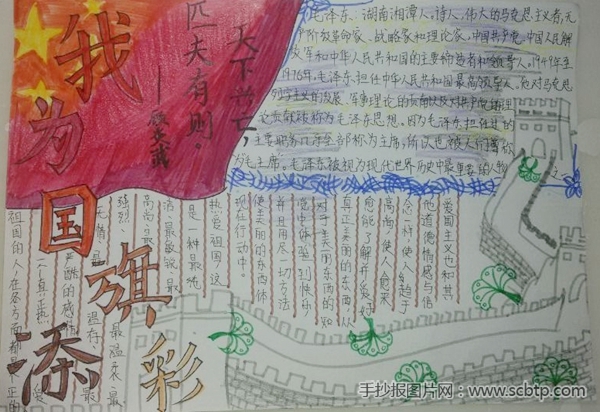 我为国旗添彩
天下兴亡，
匹夫有则。
——顾炎武
毛泽东、湖南湘潭人。诗人，伟大的马克思主义者,无
产阶级革命家、战略家和理论家，中国共产党，中国人民解
放军和中华人民共和国的主要缔造者和领导人。1949年至
1976年，毛泽东担任中华人民共和国最高领导人。他对马克思
列宁主义的发展、军事理论的贡献以及对共产党的理
论贡献被称为毛泽东思想。因为毛泽东担任过的
主要职务几乎全部称为主席，所以也被人们尊称
为毛主席。毛泽东被视为现代世界历史中最重要的人物
爱国主义也和其
他道德情感与信
念一样使人趋于
高尚，使人愈来
愈能了解并爱好
真正美丽的东西，从
对于美丽东西的知
觉中体验到快乐
并且用尽一切方法
使美丽的东西体
现在行动中。
热爱祖国，这
是一种最纯
洁、最敏锐、最
高尚、最
强烈、最温柔、最
无情、最温存、最
严酷的感情
一个真正热爱
祖国的人在各方面都是个正的
手抄报图片网：www.scbtp.com